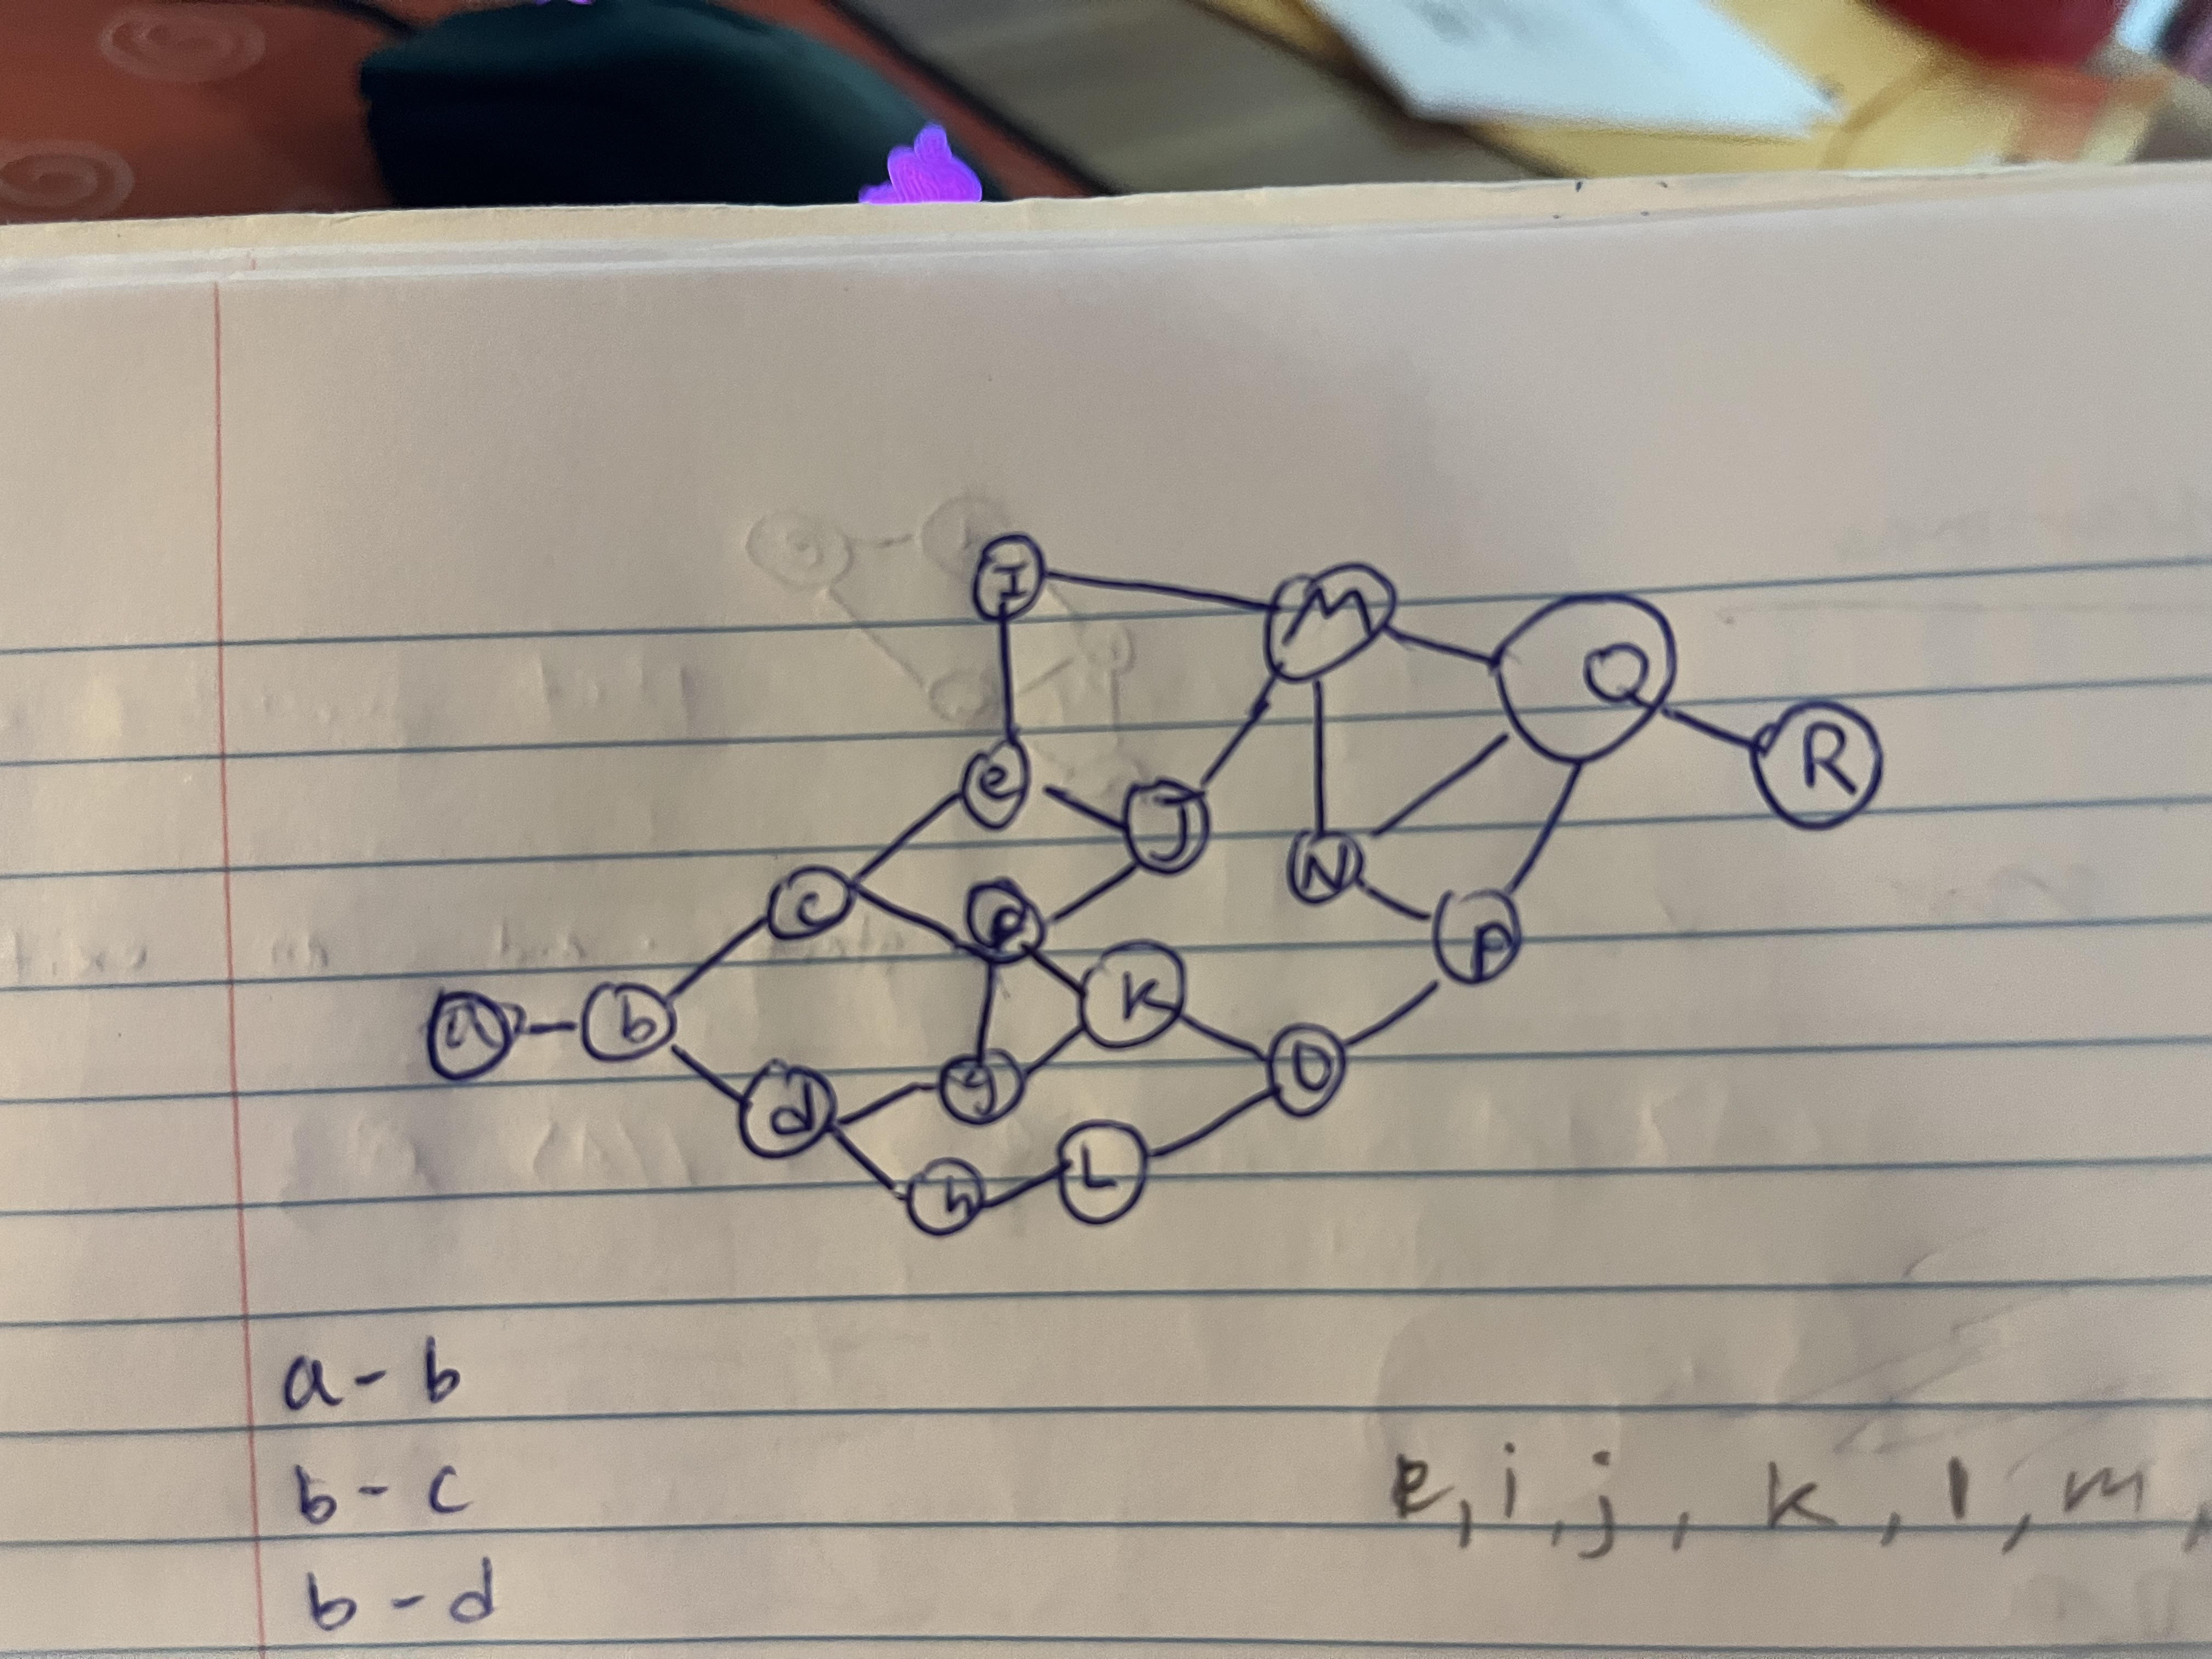 I
M
Q
R
e
J
c
N
P
K
a
b
O
d
g
L
h
a - b
b - c
b - d
e, i, j, k, l, m,